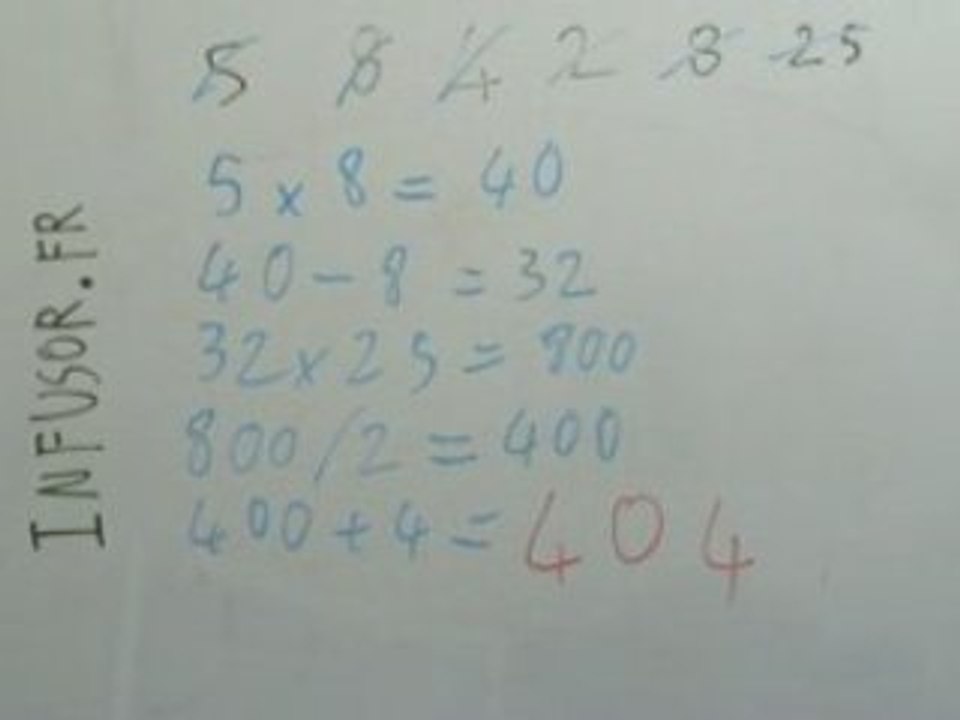 5 8 4 2 8 25
5 x 8 = 40
40 - 8 = 32
32 x 25 = 800
800 / 2 = 400
400 + 4 = 404
INFUSOR.FR